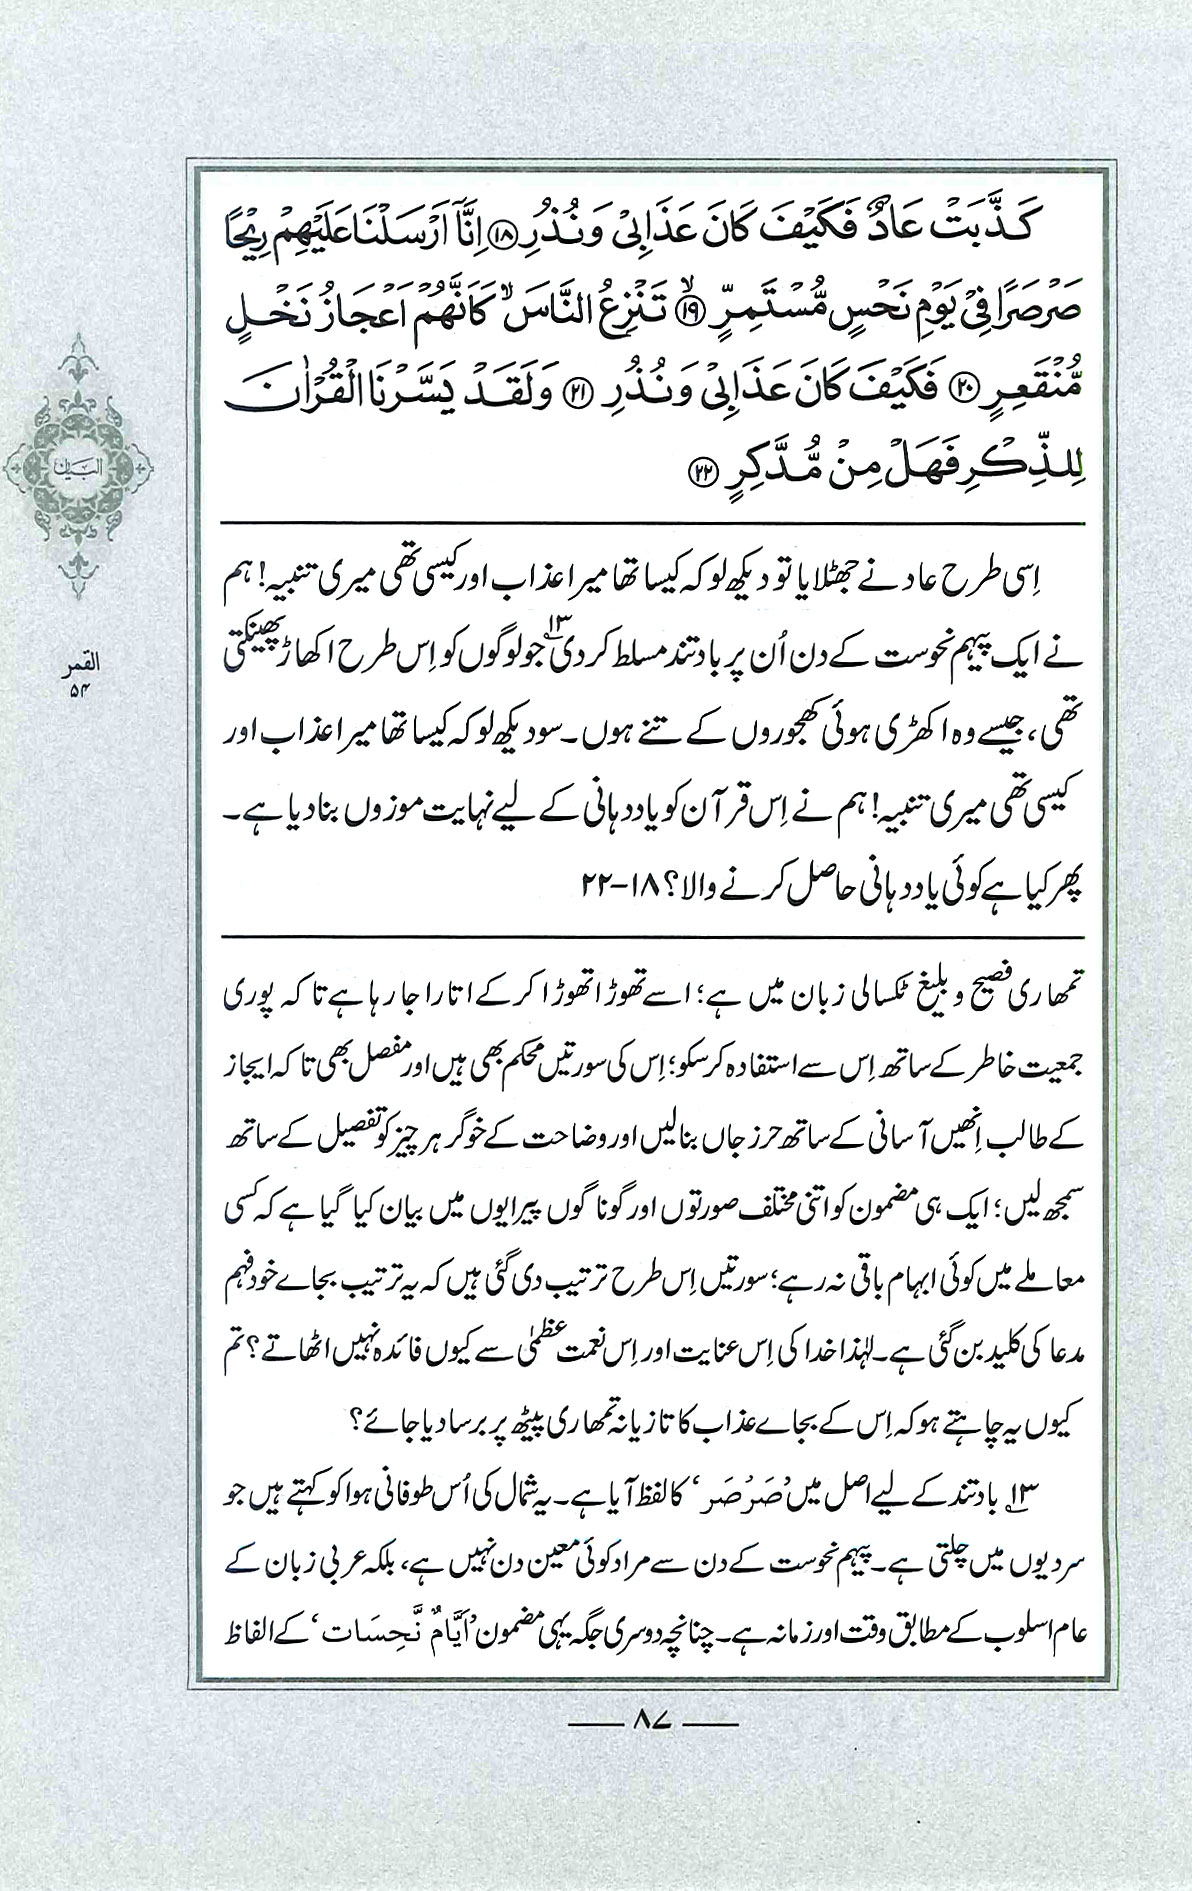 كَذَّبَتْ عَادٌ فَكَيْفَ كَانَ عَذَابِيْ وَنُذُرِ ﴿۱۸﴾ اِنَّآ اَرْسَلْنَا عَلَيْهِمْ رِيْحًا
صَرْصَرًا فِيْ يَوْمِ نَحْسٍ مُّسْتَمِرٍّ ﴿۱۹﴾ۙ تَنْزِعُ النَّاسَ ۙ كَاَنَّهُمْ اَعْجَازُ نَخْلٍ
مُّنْقَعِرٍ ﴿۲۰﴾ فَكَيْفَ كَانَ عَذَابِيْ وَنُذُرِ ﴿۲۱﴾ وَلَقَدْ يَسَّرْنَا الْقُرْاٰنَ
لِلذِّكْرِ فَهَلْ مِنْ مُّدَّكِرٍ ﴿۲۲﴾
اِسی طرح عاد نے جھٹلایا تو دیکھ لو کہ کیسا تھا میرا عذاب اور کیسی تھی میری تنبیہ! ہم
نے ایک پیہم نحوست کے دن اُن پر باد تند مسلط کر دی۱۳ جو لوگوں کو اِس طرح اکھاڑ پھینکتی
تھی، جیسے وہ اکھڑی ہوئی کھجوروں کے تنے ہوں۔ سو دیکھ لو کہ کیسا تھا میرا عذاب اور
کیسی تھی میری تنبیہ! ہم نے اِس قرآن کو یاددہانی کے لیے نہایت موزوں بنا دیا ہے۔
پھر کیا ہے کوئی یاددہانی حاصل کرنے والا؟ ۱۸-۲۲
تمھاری فصیح و بلیغ ٹکسالی زبان میں ہے؛ اسے تھوڑا تھوڑا کر کے اتارا جا رہا ہے تاکہ پوری
جمعیت خاطر کے ساتھ اِس سے استفادہ کر سکو؛ اِس کی سورتیں محکم بھی ہیں اور مفصل بھی تاکہ ایجاز
کے طالب اِنھیں آسانی کے ساتھ حرز جاں بنا لیں اور وضاحت کے خوگر ہر چیز کو تفصیل کے ساتھ
سمجھ لیں؛ ایک ہی مضمون کو اتنی مختلف صورتوں اور گوناگوں پیرایوں میں بیان کیا گیا ہے کہ کسی
معاملے میں کوئی ابہام باقی نہ رہے؛ سورتیں اِس طرح ترتیب دی گئی ہیں کہ یہ ترتیب بجاے خود فہم
مدعا کی کلید بن گئی ہے۔ لہٰذا خدا کی اِس عنایت اور اِس نعمت عظمیٰ سے کیوں فائدہ نہیں اٹھاتے؟ تم
کیوں یہ چاہتے ہو کہ اِس کے بجاے عذاب کا تازیانہ تمھاری پیٹھ پر برسا دیا جائے؟
۱۳ باد تند کے لیے اصل میں ’صَرْصَر‘ کا لفظ آیا ہے۔ یہ شمال کی اُس طوفانی ہوا کو کہتے ہیں جو
سردیوں میں چلتی ہے۔ پیہم نحوست کے دن سے مراد کوئی معین دن نہیں ہے، بلکہ عربی زبان کے
عام اسلوب کے مطابق وقت اور زمانہ ہے۔ چنانچہ دوسری جگہ یہی مضمون ’اَیَّامٌ نَّحِسَات‘ کے الفاظ
البیان
القمر
۵۴
۸۷